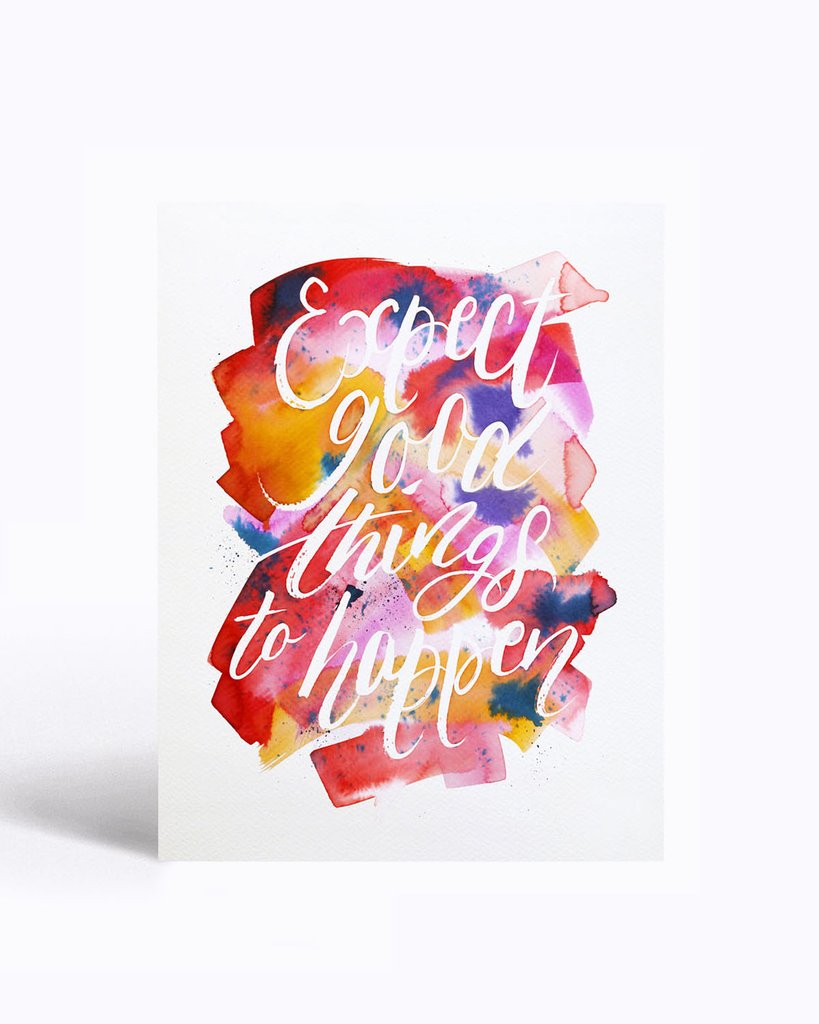 Expect
good
things
to happen